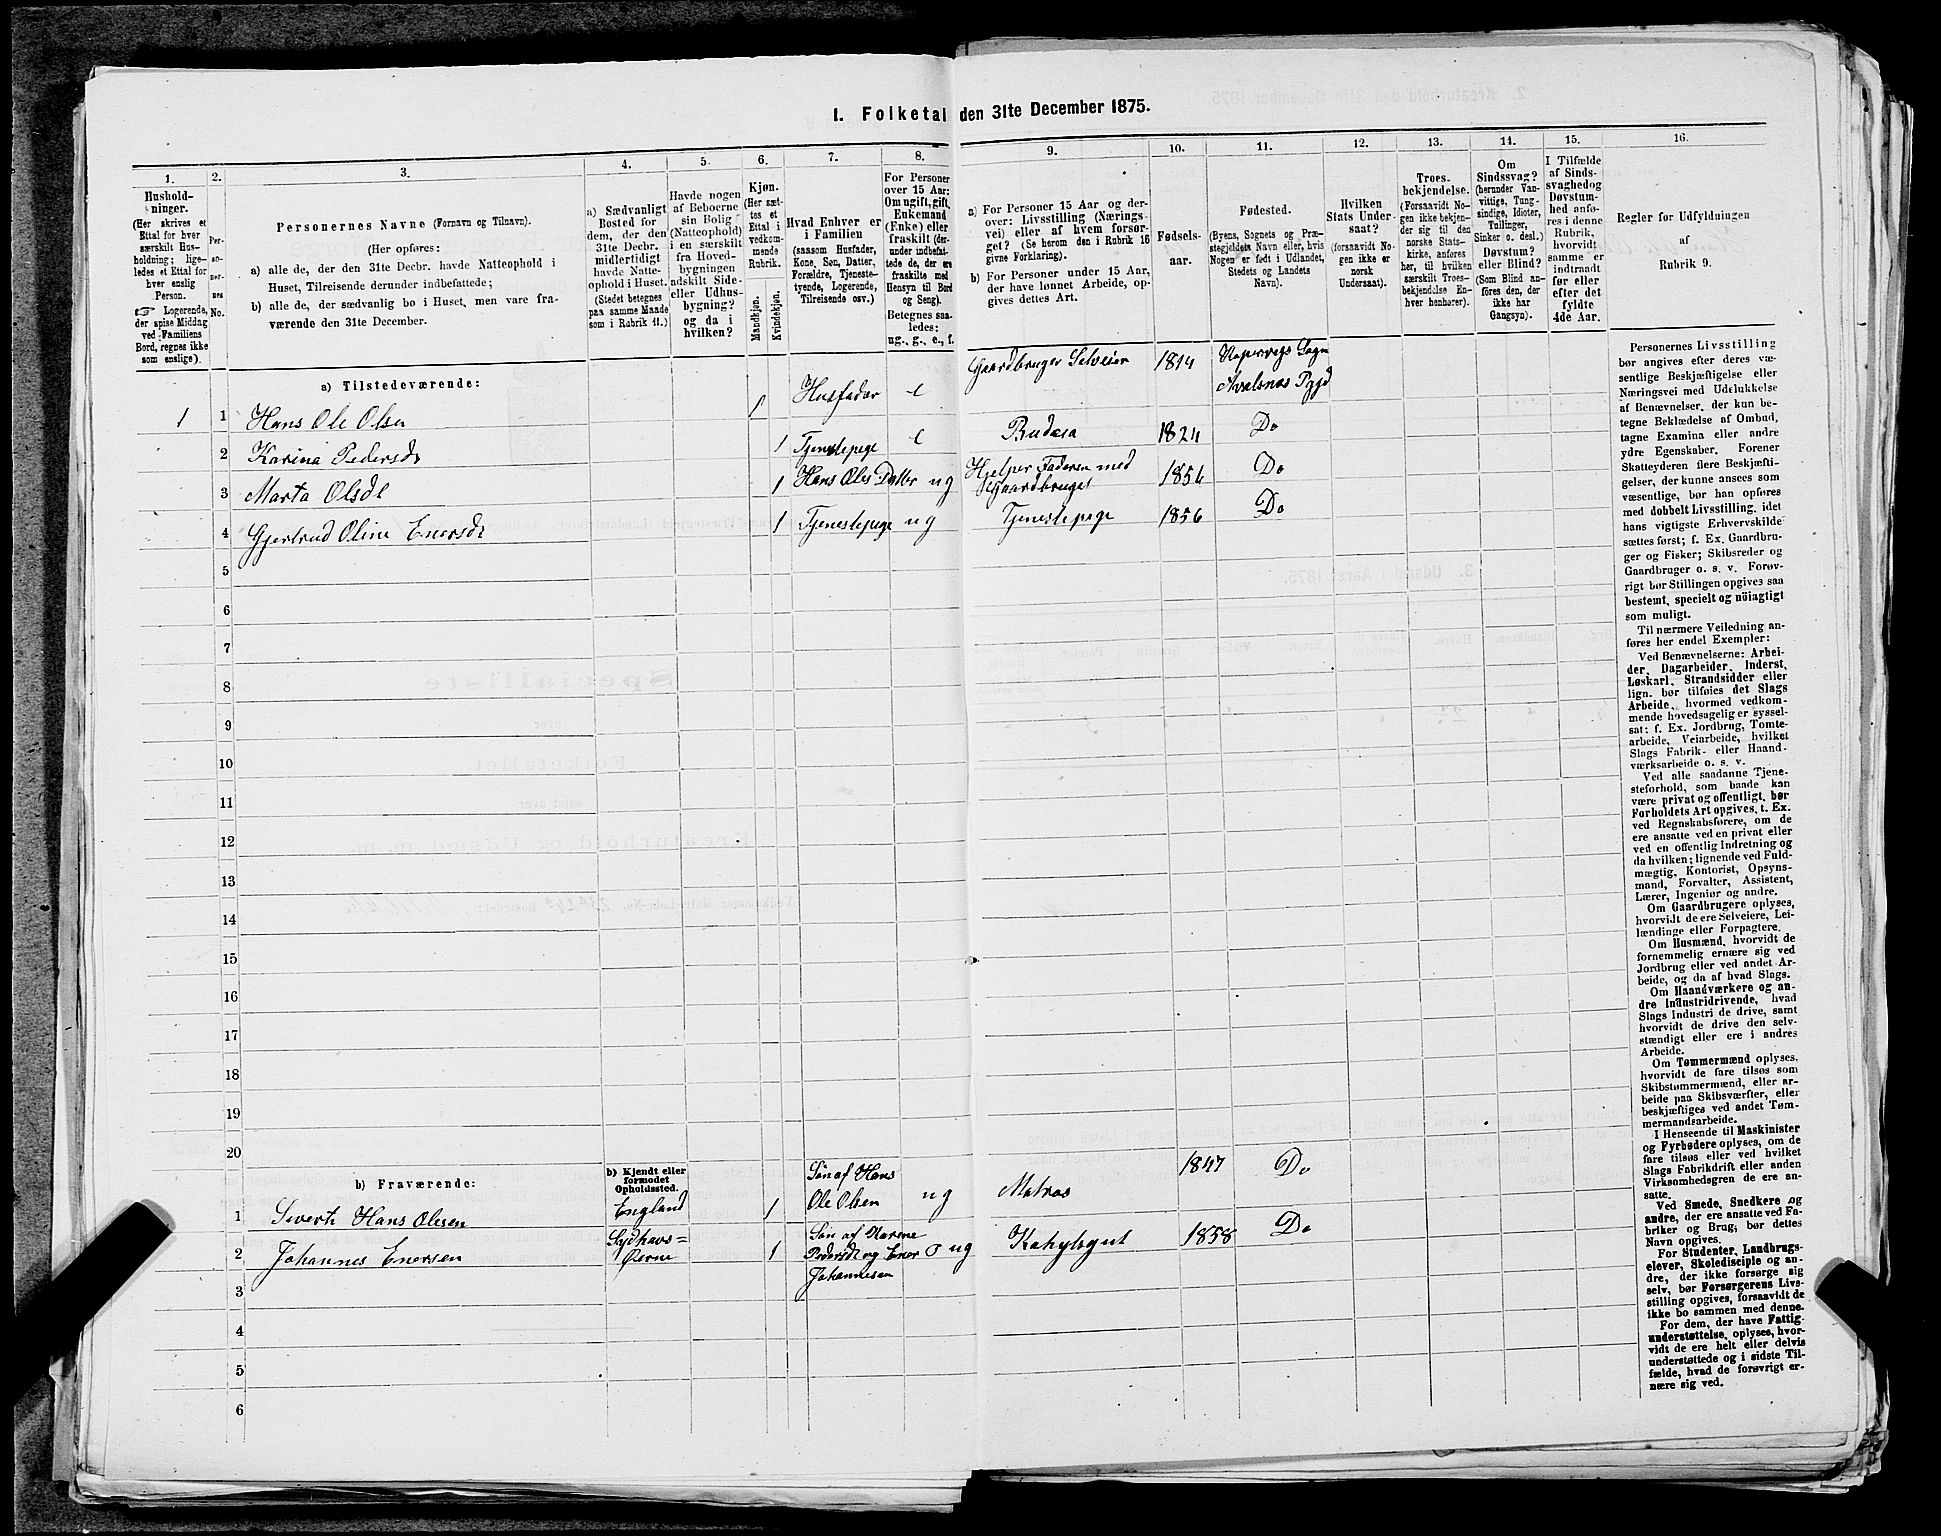 1. Folketal den 31te December 1875.
1.
2.
3.
4.
5.
6.
7.
8.
9.
10.
11.
12.
13.
14.
15.
16.
Hushold-
ninger.
(Her skrives et
Ettal for hver
særskilt Hus-
holdning; lige-
ledes et Ettal for
hver enslig
Person.
☞ Logerende,
der spise Middag
ved Familiens
Bord, regnes ikke
som enslige).
Per-
so-
ner-
nes
No.
Personernes Navne (Fornavn og Tilnavn).
(Her opføres:
a) alle de, der den 31te Decbr. havde Natteophold i
Huset, Tilreisende derunder indbefattede;
b) alle de, der sædvanlig bo i Huset, men vare fra-
værende den 31te December.
a) Sædvanligt
Bosted for
dem, der den
31te Decbr.
midlertidigt
havde Natte-
ophold i Huset.
(Stedet betegnes
paa samme Maade
som i Rubrik 11.)
Havde nogen
af Beboerne
sin Bolig
(Natteophold)
i en særskilt
fra Hoved-
bygningen
adskilt Side-
eller Udhus-
bygning?
og da i
hvilken?
Kjøn.
(Her sæt-
tes et
Ettal i
vedkom-
mende
Rubrik.
Mandkjøn.
Kvindekjøn.
Hvad Enhver er
i Familien
(saasom Husfader,
Kone, Søn, Datter,
Forældre, Tjeneste-
tyende, Logerende,
Tilreisende osv.)
For Personer
over 15 Aar:
Om ugift, gift,
Enkemand
(Enke) eller
fraskilt (der-
under indbefat-
tede de, der ere
fraskilte med
Hensyn til Bord
og Seng).
Betegnes saa-
ledes:
ug., g., e., f.
a) For Personer 15 Aar og der-
over: Livsstilling (Nærings-
vei) eller af hvem forsør-
get? (Se herom den i Rubrik 16
givne Forklaring).
b) For Personer under 15 Aar,
der have lønnet Arbeide, op-
gives dettes Art.
Fødsels-
aar.
Fødested.
(Byens, Sognets og Præ-
stegjeldets Navn eller, hvis
Nogen er født i Udlandet,
Stedets og Landets
Navn).
Hvilken
Stats Under-
saat?
(forsaavidt No-
gen ikke er
norsk
Undersaat).
Troes-
bekjendelse.
(Forsaavidt No-
gen ikke bekjen-
der sig til den
norske Stats-
kirke, anføres
her, til hvilken
særskilt Troes-
bekjendelse En-
hver henhører).
Om
Sindssvag?
(herunder Van-
vittige, Tung-
sindige, Idioter,
Tullinger,
Sinker o. desl.)
Døvstum?
eller Blind?
(Som Blind an-
føres den, der
ikke har
Gangsyn).
I Tilfælde
af Sinds-
svaghed og
Døvstum-
hed anfø-
res i denne
Rubrik,
hvorvidt
samme er
indtraadt
før eller
efter det
fyldte
4de Aar.
Regler for Udfyldningen
af
Rubrik 9.
a) Tilstedeværende:
1 1 Hans Ole Olsen 1 Husfader e Gaardbruger Selveier 1814 Sogn
Avalsnæs
2 Karina Pedersdt 1 Tjenestepige e 1824 Do
3 Marta Olsdt 1 Hans Oles Datter ug Hjelper Faderen med
Gaardbruget 1856 Do
4 Gjertrud Oline Enersdt 1 Tjenestepige ug Tjenestepige 1856 Do
5
6
7
8
9
10
11
12
13
14
15
16
17
18
19
20
b) Fraværende:
b) Kjendt eller
formodet
Opholdssted.
1 Sivert Hans Olesen England 1 Søn af Hans
Ole Olsen ug Matros 1847 Do
2 Johannes Enersen Sydhavs=
Øerne 1 Søn af Karene
Pedersdt og Ener
Johannesen ug 1858 Do
3
4
5
6
Personernes Livsstilling
bør angives efter deres væ-
sentlige Beskjæftigelse eller
Næringsvei med Udelukkelse
af Benævnelser, der kun be-
tegne Beklædelse af Ombud,
tagne Examina eller andre
ydre Egenskaber. Forener
Skatteyderen flere Beskjæfti-
gelser, der kunne ansees som
væsentlige, bør han opføres
med dobbelt Livsstilling, idet
hans vigtigste Erhvervskilde
sættes først; f. Ex. Gaardbru-
ger og Fisker; Skibsreder og
Gaardbruger o. s. v. Forøv-
rigt bør Stillingen opgives saa
bestemt, specielt og nöiagtigt
som muligt.
Til nærmere Veiledning an-
føres her endel Exempler:
Ved Benævnelserne: Arbei-
der, Dagarbeider, Inderst,
Løskarl, Strandsidder eller
lign. bør tilføies det Slags
Arbeide, hvormed vedkom-
mende hovedsagelig er syssel-
sat: f. Ex. Jordbrug, Tomte-
arbeide, Veiarbeide, hvilket
Slags Fabrik- eller Haand-
værksarbeide o. s. v.
Ved alle saadanne Tjene-
steforhold, som baade kan
være privat og offentligt, bør
Forholdets Art opgives, t. Ex.
ved Regnskabsførere, om de
ere ansatte ved en privat eller
ved en offentlig Indretning og
da hvilken; lignende ved Fuld-
mægtig, Kontorist, Opsyns-
mand, Forvalter, Assistent,
Lærer, Ingeniør og andre.
Om Gaardbrugere oplyses,
hvorvidt de ere Selveiere, Lei-
lændinge eller Forpagtere.
Om Husmænd, hvorvidt de
fornemmelig ernære sig ved
Jordbrug eller ved andet Ar-
beide, og da af hvad Slags.
Om Haandværkere og an-
dre Industridrivende, hvad
Slags Industri de drive, samt
hvorvidt de drive den selv-
stændigt eller ere i andres
Arbeide.
Om Tømmermænd oplyses,
hvorvidt de fare tilsøs som
Skibstømmermænd, eller ar-
beide paa Skibsværfter, eller
beskjæftiges ved andet Tøm-
mermandsarbeide.
I Henseende til Maskinister
og Fyrbødere oplyses, om de
fare tilsøs eller ved hvilket
Slags Fabrikdrift eller anden
Virksomhedsgren de ere an-
satte.
Ved Smede, Snedkere og
andre, der ere ansatte ved Fa-
briker og Brug; bør dettes
Navn opgives.
For Studenter, Landbrugs-
elever, Skoledisciple og an-
dre, der ikke forsørge sig
selv, bør Forsørgerens Livs-
stilling opgives, forsaavidt de
ikke bo sammen med denne.
For dem, der have Fattig-
understøttelse, oplyses, hvor-
vidt de ere helt eller delvis
understøttede og i sidste Til-
fælde, hvad de forøvrigt er-
nære sig ved.